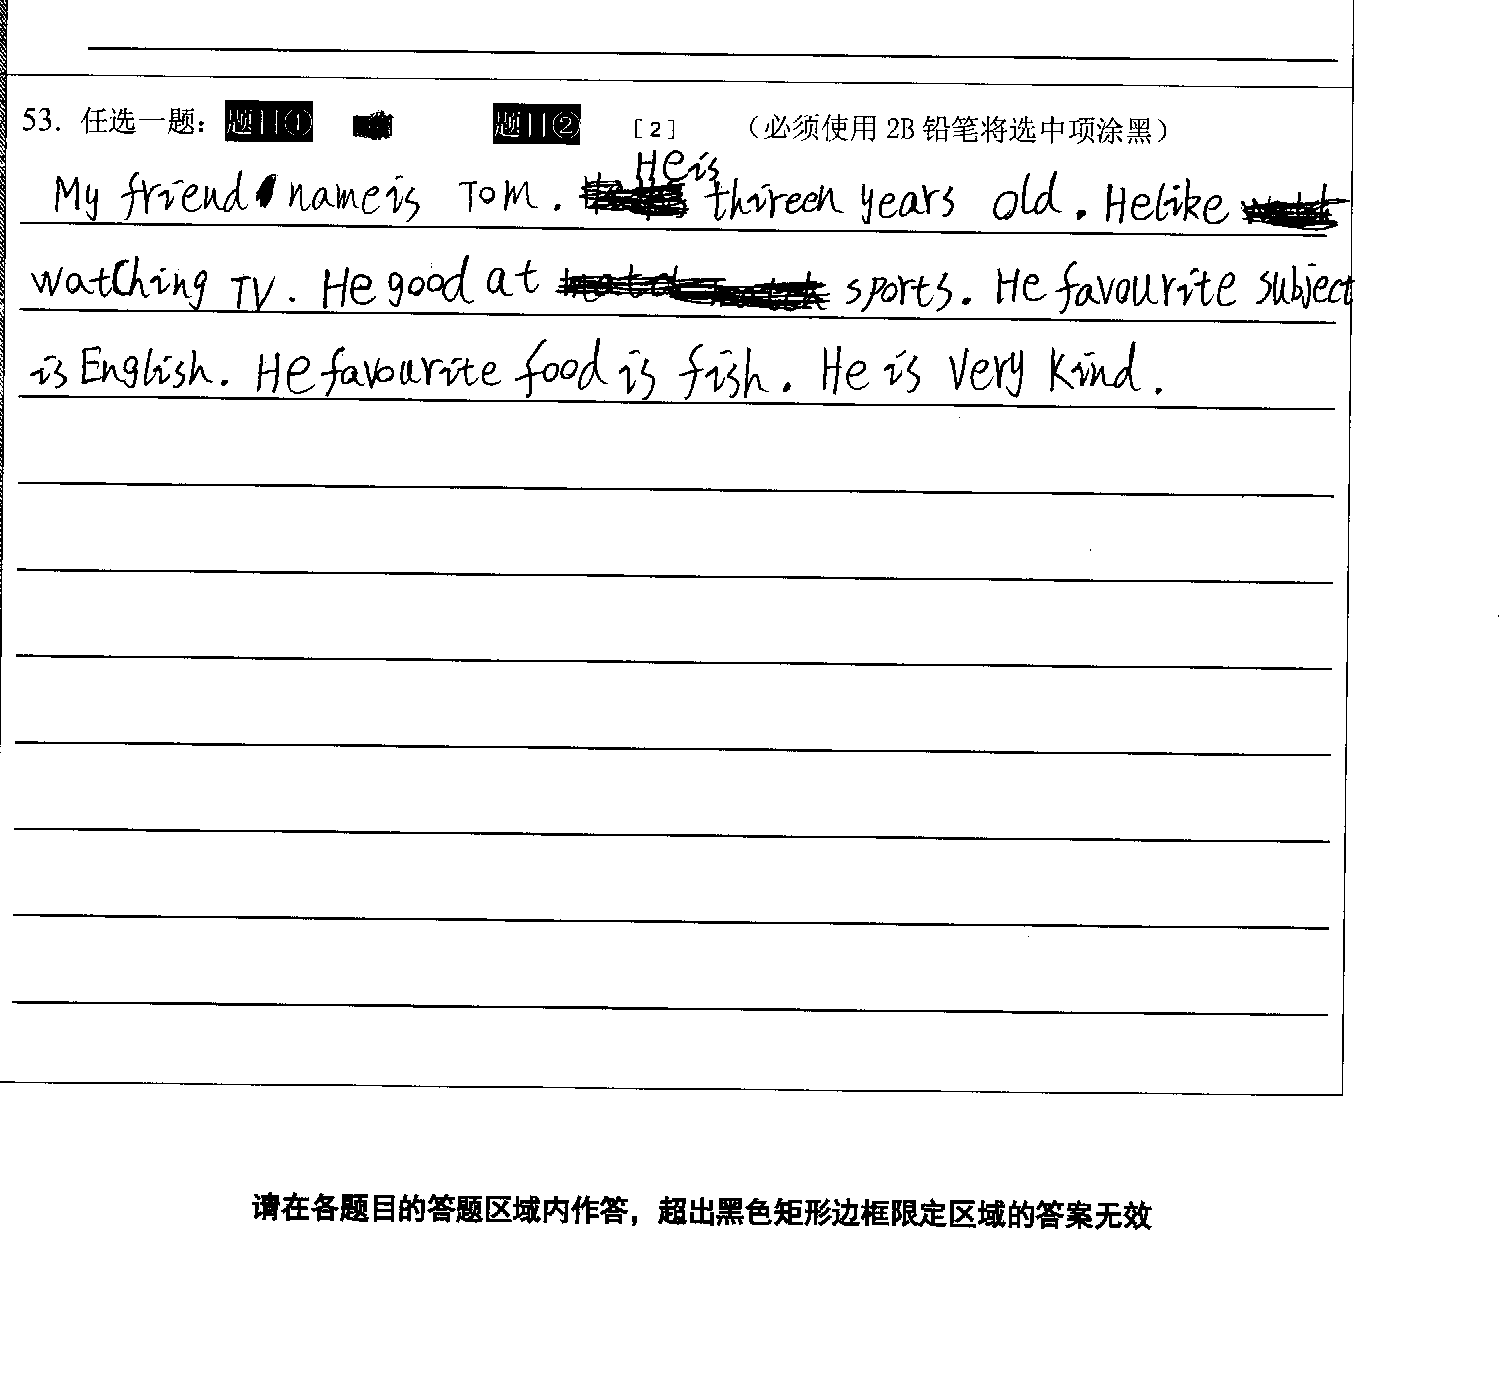 53. 任选一题： 题目① 题目② [2] （必须使用 2B 铅笔将选中项涂黑）
He is
My friend name is Tom. thireen years old. He like
watching TV. He good at sports. He favourite subject
is English. He favourite food is fish. He is very kind.
请在各题目的答题区域内作答，超出黑色矩形边框限定区域的答案无效